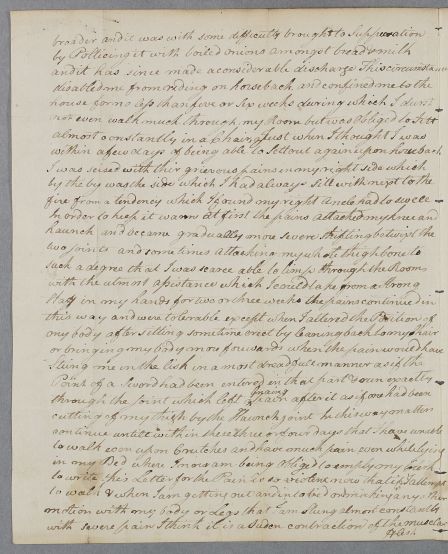 broader and it was with some difficulty brought to Suppuration
by Pollticing it with boiled onions amongst bread & milk
and it has since made a considerable discharge This circumstance
disabled me from riding on horseback, and confined me to the
house for no less than five or Six weeks during which I durst
not even walk much through my Room but was Obliged to Sitt
almost constantly in a Chair, Just when I thought I was
within a few days of being able to Sett out again upon horseback
I was seised with thir grievous pains in my right side which
by the by was the side which I had always Sitt with next to the
fire from a tendency which I found my right Ancle had to swell
In order to keep it warm at first the pains attacked my knee and
haunch and became gradually more severe Shifting betwixt the
two Joints and sometimes attacking my whole thigh bone to
such a degree that I was scarce able to limp through the Rooms
with the utmost assistance which I could take from a strong
staff in my hands for two or three weeks the pains continued in
this way and were tolerable except when I altered the Position of
my body after sitting sometime erect by leaning back to my chair
or bringing my body more forwards when the pain would have
Stung me in the lisk in a most dreadfull manner as if the
Point of a Sword had been entered in that part & run exactly
through the Joint which left a gnaing pain after it as if one had been
cutting of my thigh by the Haunch Joint In this way matters
continue untill within these three or four days that I have unable
to walk even upon Crutches and have much pain even while lying
in my Bed where I now am being Obliged to employ my
to write this Letter for the Pain is so violent now that if I attempt
to walk & when I am getting out and in to bed or making any other
motion with my body or Legs that I am stung almost constantly
with severe pain I think it is a Suden contraction of the muscular
flesh